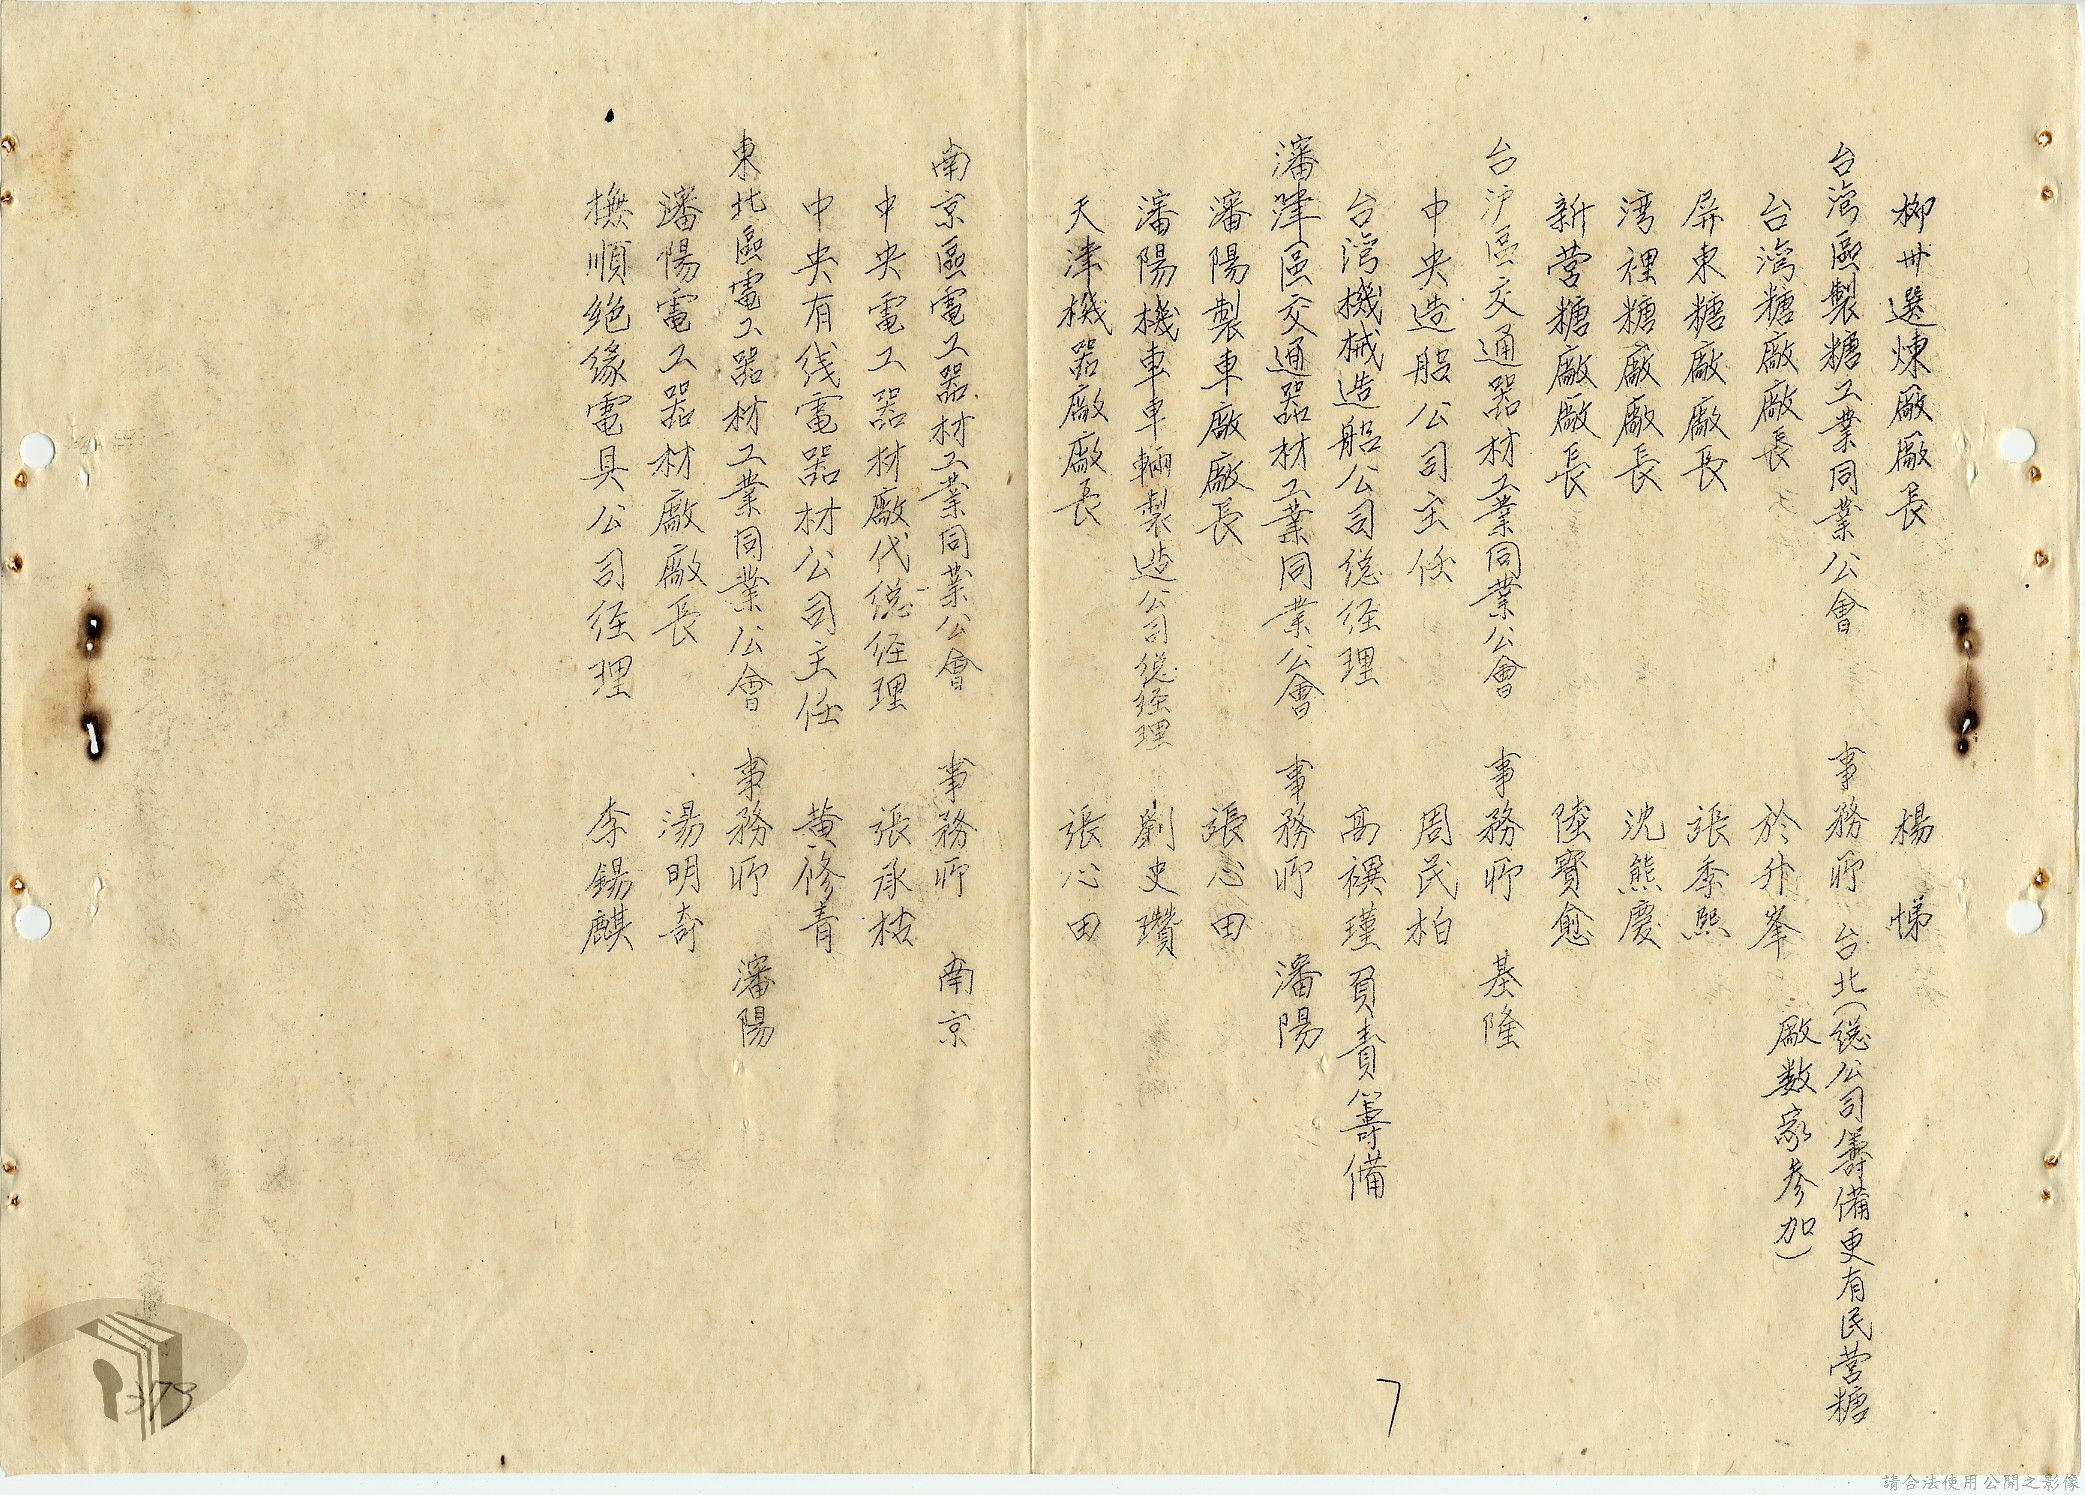 柳州選煉廠廠長　楊悌
台灣區製糖工業同業公會　事務所　台北（總公司籌備更有民營糖
廠数家參加）
台灣糖廠廠長　於升峯
屏東糖廠廠長　張季熙
湾裡糖廠廠長　沈熊慶
新營糖廠廠長　陸寶愈
台沪區交通器材工業同業公會　事務所　基隆
中央造船公司主任　周茂柏
台灣機械造船公司総経理　高禩瑾　負責籌備
瀋津區交通器材工業同業公會　事務所　瀋陽
瀋陽製車廠廠長　張心田
瀋陽機車車輛製造公司総経理　劉史瓚
天津機器廠廠長　張心田
南京區電工器材工業同業公會　事務所　南京
中央電工器材廠代総経理　張承祜
中央有线電器材公司主任　黄修青
東北區電工器材工業同業公會　事務所　瀋陽
瀋陽電工器材廠廠長　湯明奇
撫順絶緣電具公司経理　李錫麒
7
379
請合法使用公開之影像